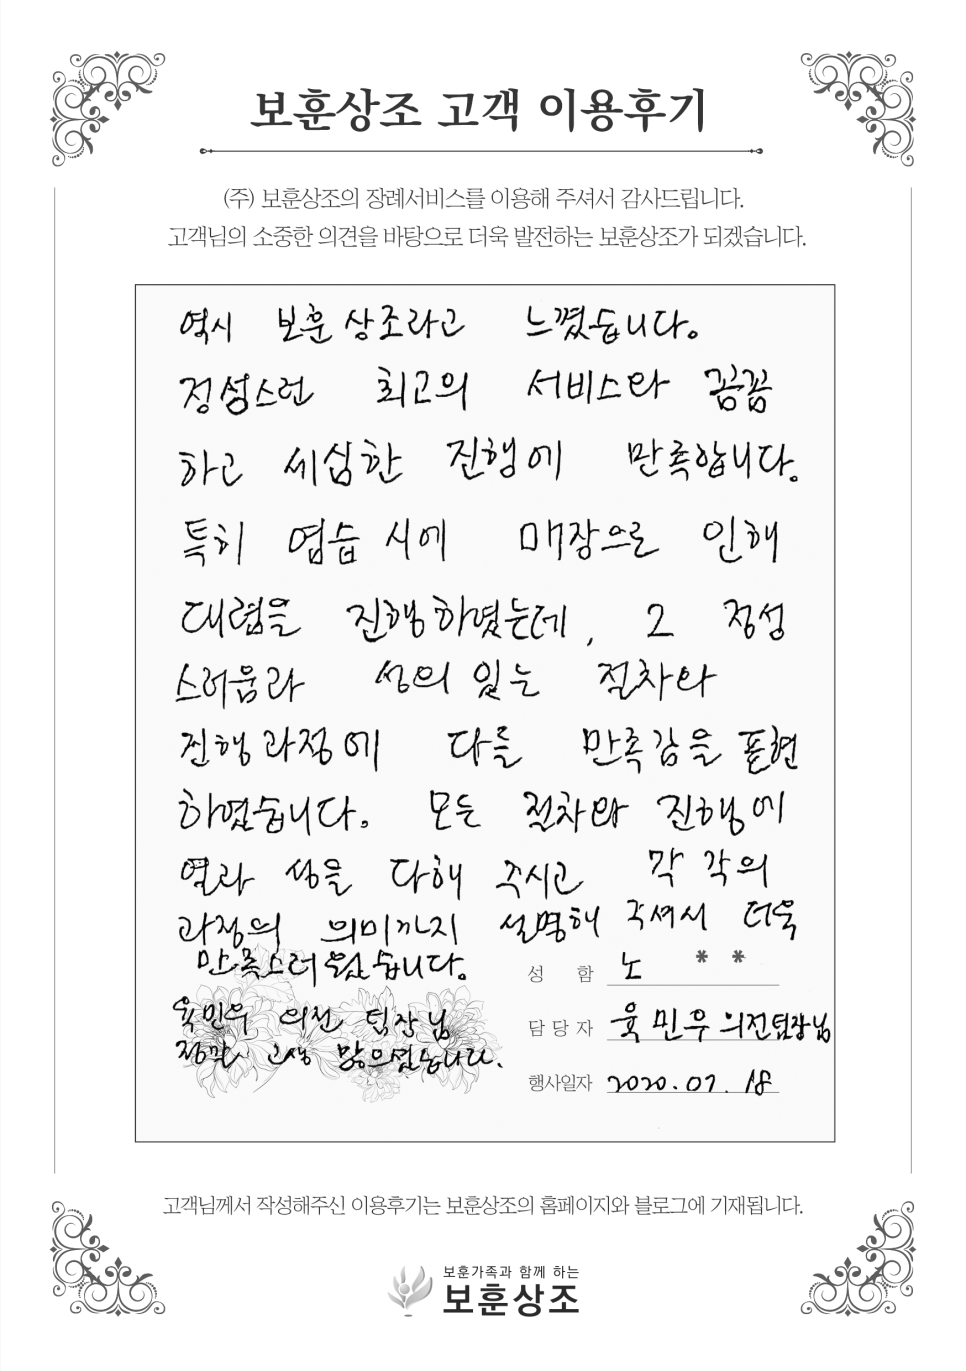 보훈상조 고객 이용후기
(주) 보훈상조의 장례서비스를 이용해 주셔서 감사드립니다.
고객님의 소중한 의견을 바탕으로 더욱 발전하는 보훈상조가 되겠습니다.
역시 보훈상조라고 느꼈습니다.
정성스런 최고의 서비스와 꼼꼼
하고 세심한 진행에 만족합니다.
특히 염습 시에 매장으로 인해
대렴을 진행하였는데, 그 정성
스러움과 성의 있는 절차와
진행과정에 다들 만족감을 표현
하였습니다. 모든 절차와 진행에
열과 성을 다해 주시고 각각의
과정의 의미까지 설명해 주셔서 더욱
만족스러웠습니다.
육민우 의전팀장님
정말 고생 많으셨습니다.
성 함 노 * *
담당자 육민우 의전팀장님
행사일자 2020.07.18
고객님께서 작성해주신 이용후기는 보훈상조의 홈페이지와 블로그에 기재됩니다.
보훈가족과 함께 하는
보훈상조